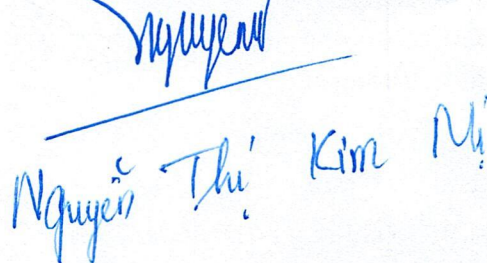 Nguyễn
Nguyễn Thị Kim